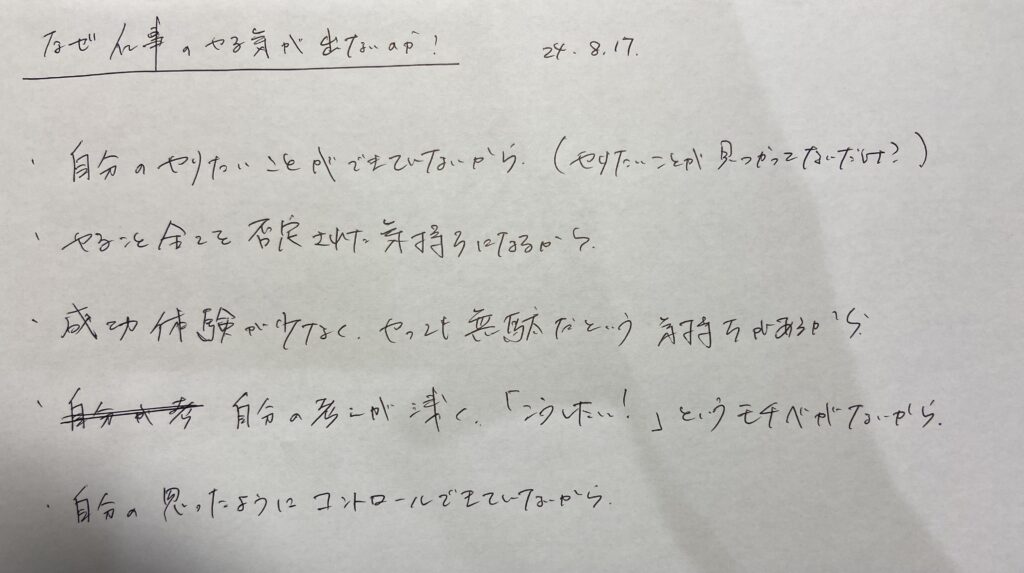 なぜ仕事のやる気が出ないのか! 24.8.17.
・自分のやりたいことができていないから。(やりたいことが見つかってないだけ?)
・やること全てを否定された気持ちになるから。
・成功体験が少なく、やっても無駄だという気持ちがあるから
・自分の考 自分の考えが浅く、「こうしたい!」というモチベがないから。
・自分の思ったようにコントロールできていないから。